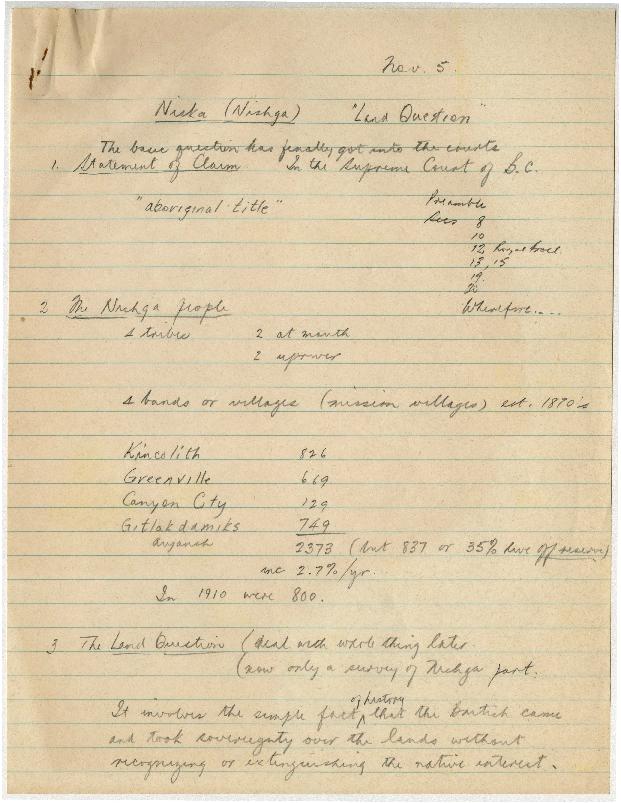 Nov. 5.
Niska (Nishga) "Land Question"
The basic question has finally got into the courts
1. Statement of Claim In the Supreme Court of B.C.
"aboriginal title"
Preamble
Secs 8
10
12 Royal Procl.
13, 15
19
Wherefore....
2 The Nishga people
4 tribes 2 at mouth
2 upriver
4 bands or villages (mission villages) est. 1870's
Kincolith 826
Greenville 669
Canyon City 129
Gitlakdamiks 749
Aiyansh 2373 (but 837 or 35% live off reserve)
inc 2.7%/yr.
In 1910 were 800.
3 The Land Question (deal with whole thing later
(now only a survey of Nishga part.
It involves the simple fact of history that the British came
and took sovereignty over the lands without
recognizing or extinguishing the native interest.